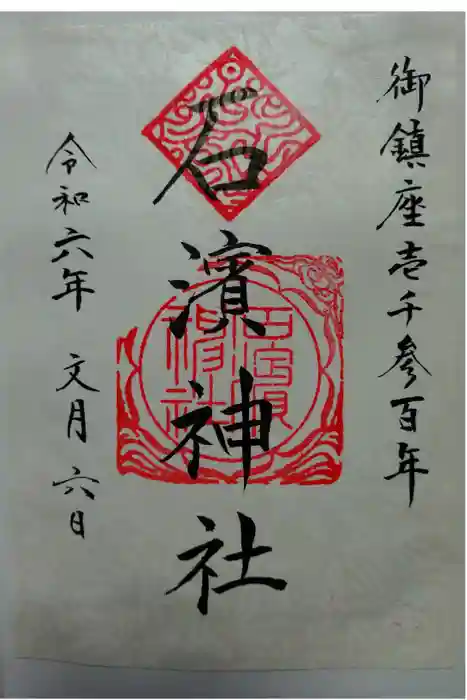 御鎮座壱千参百年
石濱神社
令和六年 文月 六日